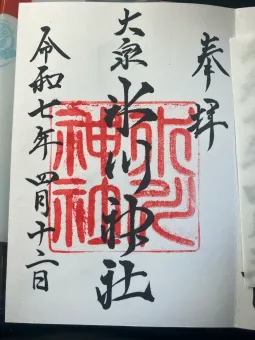 奉拝
大泉
氷川神社
氷川神社
令和七年四月十二日